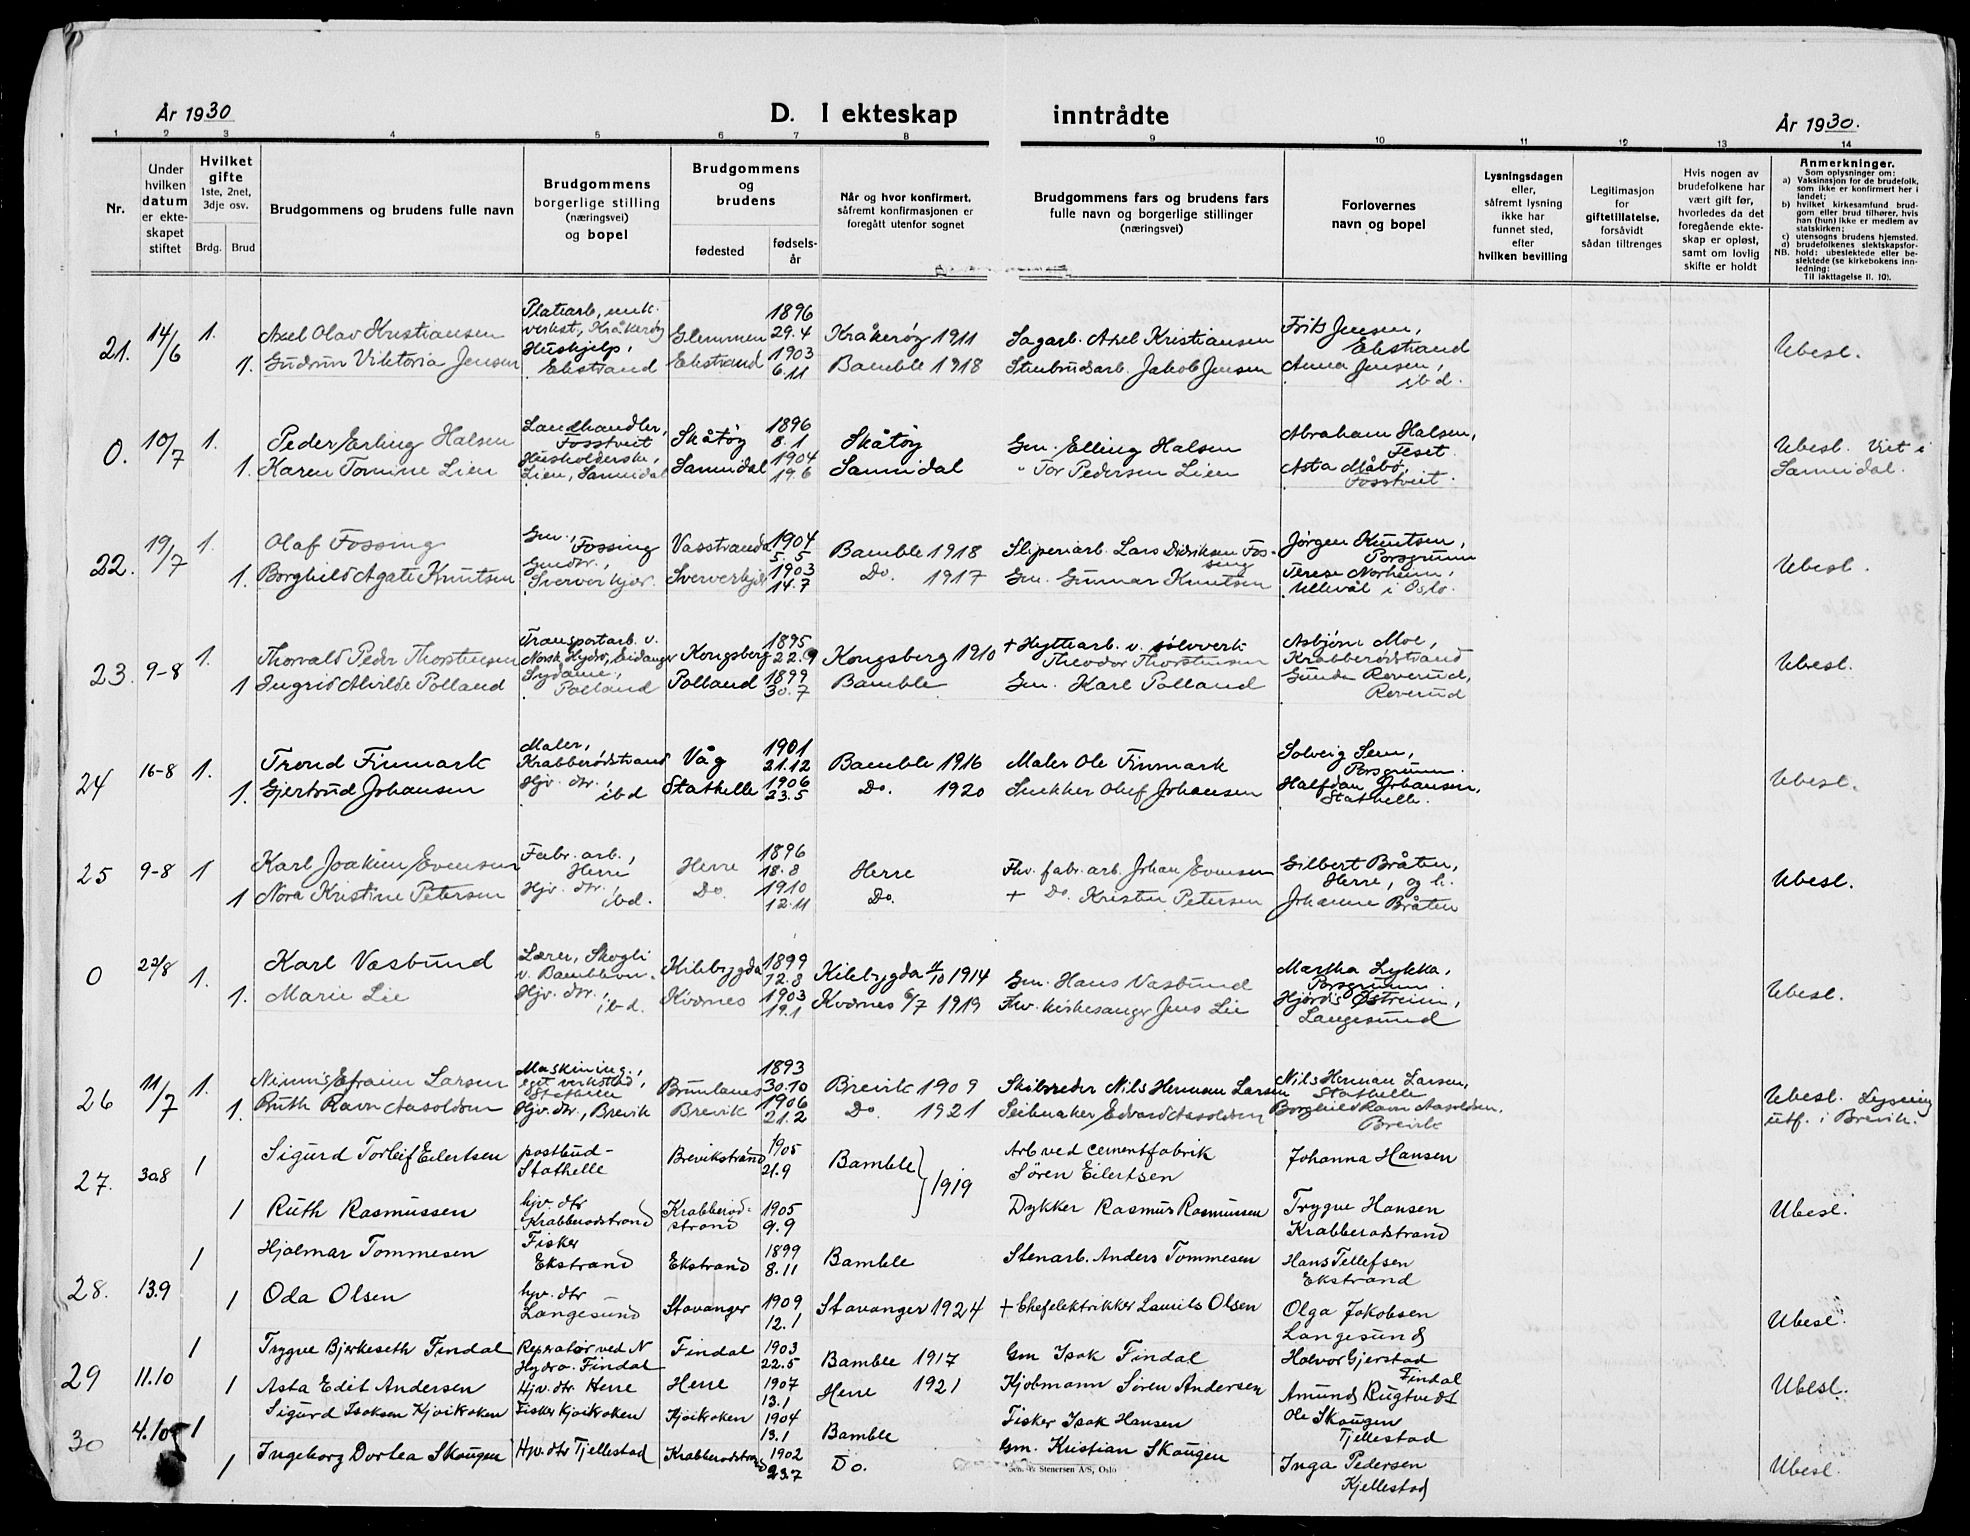 År 1930 D. I ekteskap inntrådte År 1930.
1 2 3 4 5 6 7 8 9 10 11 12 13 14
Nr.
Under hvilken datum er ekteskapet stiftet
Hvilket gifte 1ste, 2net, 3dje osv. Brdg. Brud
Brudgommens og brudens fulle navn
Brudgommens borgerlige stilling (næringsvei) og bopel
Brudgommens og brudens fødested fødselsår
Når og hvor konfirmert, såfremt konfirmasjonen er foregått utenfor sognet
Brudgommens fars og brudens fars fulle navn og borgerlige stillinger (næringsvei)
Forlovernes navn og bopel
Lysningsdagen eller, såfremt lysning ikke har funnet sted, efter hvilken bevilling
Legitimasjon for giftetillatelse, forsåvidt sådan tiltrenges
Hvis nogen av brudefolkene har vært gift før, hvorledes da det foregående ekteskap er opløst, samt om lovlig skifte er holdt
Anmerkninger.
Som oplysninger om:
a) Vaksinasjon for de brudefolk, som ikke er konfirmert her i landet;
b) hvilket kirkesamfund brudgom eller brud tilhører, hvis han (hun) ikke er medlem av statskirken;
c) utensogns brudens hjemsted.
d) brudefolkenes slektskapsforhold: ubeslektede eller beslektede (se kirkebokens innledning:
NB. Til iakttagelse II. 10).
21. 14/6 1. Axel Olav Kristiansen Platearb. mek. verkst., Kråkerøy Glemmen 1896 29.4 Kråkerøy 1911 Sagarb. Axel Kristiansen Frits Jensen, Ekstrand
1. Gudrun Viktoria Jensen Hushjelp, Ekstrand Ekstrand 1903 6.11 Bamble 1918 Stenbrudsarb. Jakob Jensen Anna Jensen, ibd. Ubesl.
0. 10/7 1. Peder Erling Halsen Landhandler, Fosstveit Skåtøy 1896 8.1 Skåtøy Gm. Elling Halsen Abraham Halsen, Feset
1. Karen Tomine Lien Husholderske, Lien, Sannidal Sannidal 1904 19.6 Sannidal " Tor Pedersen Lien Asta Måbø, Fosstveit. Ubesl. Viet i Sannidal.
22. 19/7 1. Olaf Fossing Gm., Fossing Vasstranda 1904 5.5 Bamble 1918 Sliperiarb. Lars Didriksen Fossing Jørgen Knutsen, Porsgrunn
1. Borghild Agate Knutsen Gmdtr., Sververkjær Sververkjær 1903 14.7 Do. 1917 Gm. Gunnar Knutsen Terese Norheim, Ullevål i Oslo. Ubesl.
23. 9-8 1. Thorvald Peder Thorstensen Transportarb. v. Norsk Hydro, Eidanger Kongsberg 1895 22.9 Kongsberg 1910 + Hyttearb. v. sølvverk Theodor Thorstensen Asbjørn Moe, Krabberødstrand
1 Ingrid Alvilde Polland Sydame, Polland Polland 1899 30.7 Bamble Gm. Karl Polland Gunda Reverud, Reverud Ubesl.
24 16-8 1. Trond Finmark Maler, Krabberødstrand Våg 1901 21.12 Bamble 1916 Maler Ole Finmark Solveig Sem, Porsgrunn.
1. Gjertrud Johansen Hjv. dtr., ibd Stathelle 1906 23.5 Do. 1920 Snekker Olef Johansen Halfdan Johansen, Stathelle. Ubesl.
25 9-8 1 Karl Joakim Evensen Fabr. arb., Herre Herre 1896 18.8 Herre Fhv. fabr. arb. Johan Evensen Gilbert Bråten, Herre, og h.
1 Nora Kristine Petersen Hjv. dtr., ibd. Do. 1910 12.11 Do. + Do. Kristen Petersen Johanne Bråten Ubesl.
0 22/8 1. Karl Vasbund Lærer, Skogli v. Bamble Kilebygda 1899 12.8 Kilebygda 4/10 1914 Gm. Hans Vasbund Martha Lykka, Porsgrunn.
1. Marie Lie Hjv. dtr., ibd. Kvernes 1903 19.1 Kvernes 6/7 1919 Fhv. kirkesanger Jens Lie Hjørdis Østreim, Langesund Ubesl.
26 11/7 1. Efraim Larsen Maskining., eget verksted, Stathelle Brunlanes 1893 30.10 Brevik 1909 Skibsreder Nils Herman Larsen Nils Herman Larsen, Stathelle
1. Ruth Ravn Aasoldsen Hjv. dtr., Brevik Brevik 1906 21.2 Do. 1921 Seilmaker Edvard Aasoldsen Borghild Ravn Aasoldsen, Brevik Ubesl. Lysning utf. i Brevik.
27. 30.8 1 Sigurd Torleif Eilertsen postbud- Stathelle Brevikstrand 1905 21.9 Bamble 1919 Arb ved cementfabrik Søren Eilertsen Johanna Hansen
1 Ruth Rasmussen hjv. dtr Krabberødstrand Krabberødstrand 1905 9.9 Dykker Rasmus Rasmussen Trygve Hansen Krabberødstrand Ubesl.
28. 13.9 1 Hjalmar Tommesen Fisker Ekstrand Ekstrand 1899 8.11 Bamble Stenarb. Anders Tommesen Hans Tellefsen Ekstrand
1 Oda Olsen hjv. dtr Langesund Stavanger 1909 12.1 Stavanger 1924 + Chefelektrikker Laurits Olsen Olga Jakobsen Langesund Ubesl.
29 11.10 1 Trygve Bjerkeseth Findal Reperatør ved N Hydro. Findal Findal 1903 22.5 Bamble 1917 Gm Isak Findal Halvor Gjerstad Findal
1 Asta Edit Andersen Hjv. dtr. Herre Herre 1907 13.1 Herre 1921 Kjølmann Søren Andersen Amund Rugtvedt Ubesl.
30 4.10 1 Sigurd Isaksen Kjøikroken Fisker Kjøikroken Kjøikroken 1904 13.1 Bamble Fisker Isak Hansen Ole Skaugen Tjellestad
1 Ingeborg Dorthea Skaugen Hjv. dtr Tjellestad Krabberødstrand 1902 23.7 Do. Gm. Kristian Skaugen Inga Pedersen Kjellestad Ubesl.
Stenersen A/S, Oslo